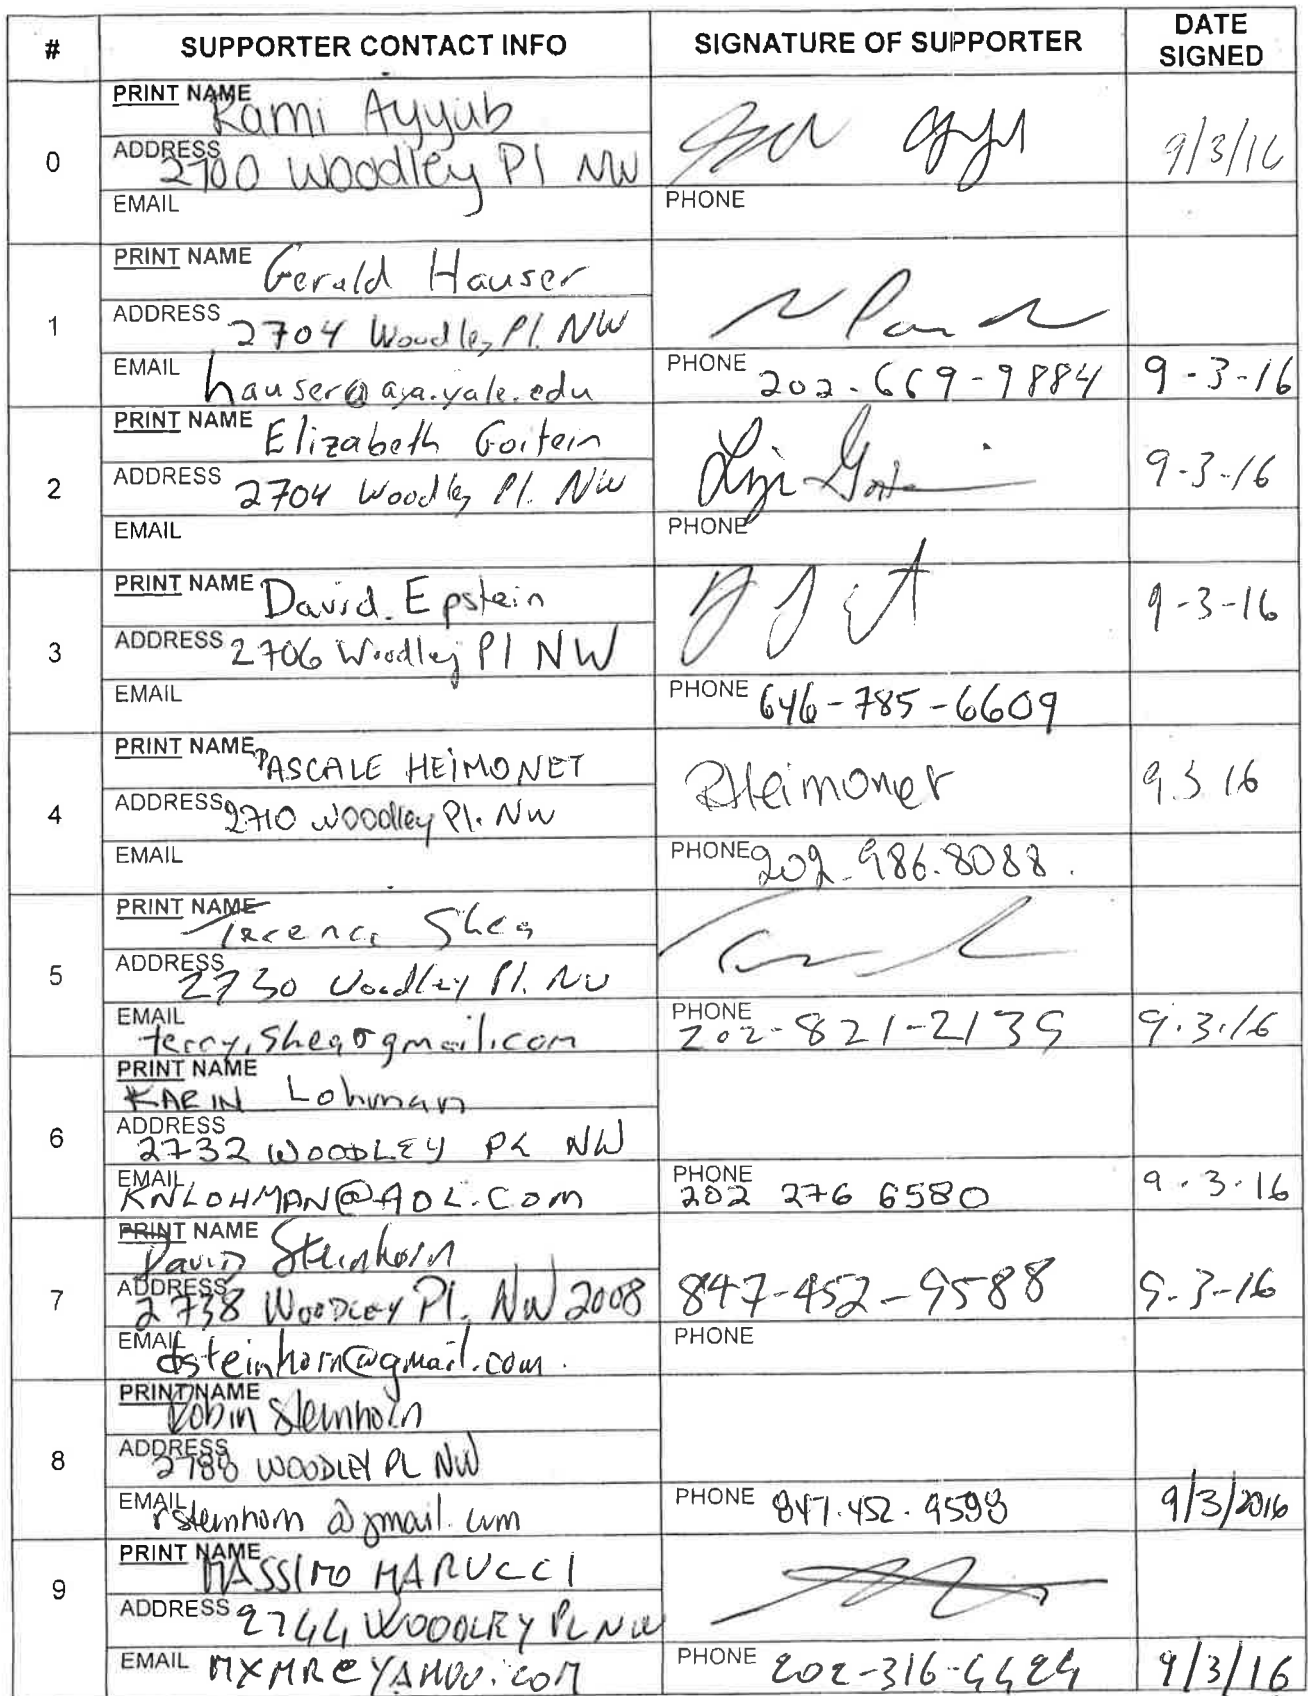 # SUPPORTER CONTACT INFO SIGNATURE OF SUPPORTER DATE SIGNED
0
PRINT NAME Rami Ayyub
9/3/16
ADDRESS 2700 Woodley Pl NW
EMAIL
PHONE
1
PRINT NAME Gerald Hauser
ADDRESS 2704 Woodley Pl. NW
EMAIL hauser@aya.yale.edu
PHONE 202-669-9884
9-3-16
2
PRINT NAME Elizabeth Goitein
9-3-16
ADDRESS 2704 Woodley Pl. NW
EMAIL
PHONE
3
PRINT NAME David Epstein
9-3-16
ADDRESS 2706 Woodley Pl NW
EMAIL
PHONE 646-785-6609
4
PRINT NAME PASCALE HEIMONET
PHeimonet
9.3 16
ADDRESS 2710 Woodley Pl. NW
EMAIL
PHONE 202-986.8088.
5
PRINT NAME Terence Shea
ADDRESS 2730 Woodley Pl. NW
EMAIL terry.shea@gmail.com
PHONE 202-821-2139
9.3.16
6
PRINT NAME KARIN Lohman
ADDRESS 2732 WOODLEY PL NW
EMAIL KNLOHMAN@AOL.COM
PHONE 202 276 6580
9.3.16
7
PRINT NAME David Steinhorn
ADDRESS 2738 WOODLEY Pl. NW 2008
847-452-9588
9-3-16
EMAIL dsteinhorn@gmail.com.
PHONE
8
PRINT NAME Robin Steinhorn
ADDRESS WOODLEY PL NW
EMAIL rsteinhorn@gmail.com
PHONE 847.452.9598
9/3/2016
9
PRINT NAME MASSIMO MARUCCI
ADDRESS 2744 WOODLEY PL NW
EMAIL MXMR@YAHOO.COM
PHONE 202-316-4424
9/3/16